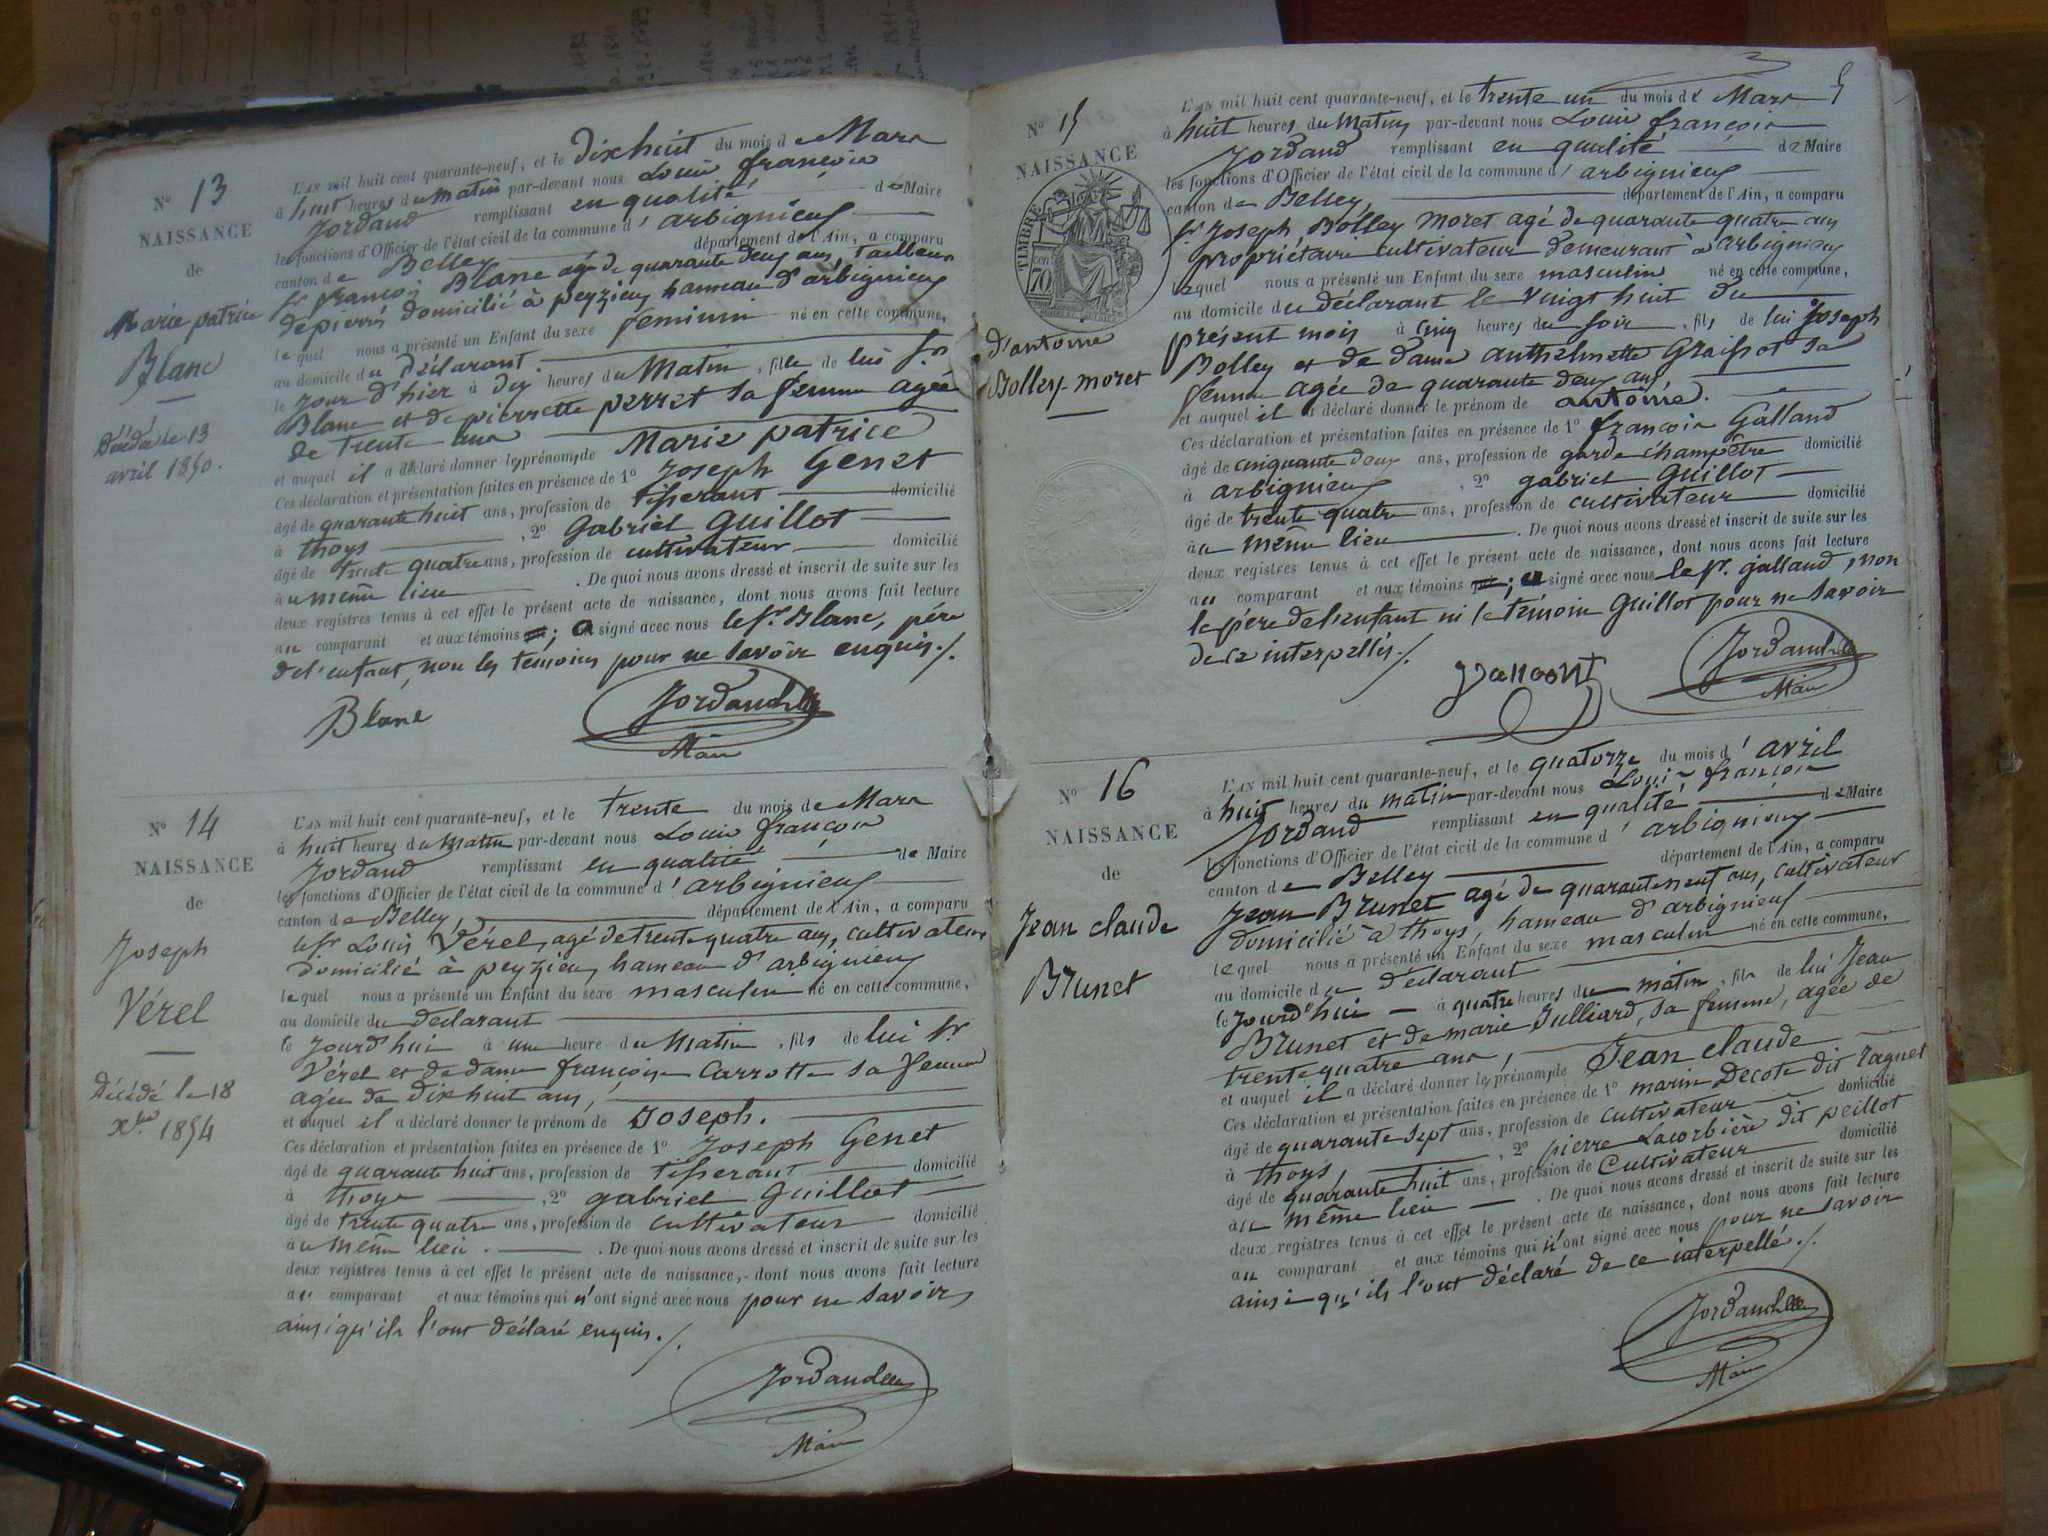 N° 13
NAISSANCE
de
Marie patrice
Blanc
Décédée le 13
avril 1850.
L'AN mil huit cent quarante-neuf, et le Dixhuit du mois de Mars
à huit heures du Matin par-devant nous Louis françois
Jordand remplissant en qualité de Maire
les fonctions d'Officier de l'état civil de la commune d'arbignieu
canton de Belley département de l'Ain, a comparu
Sr françois Blanc agé de quarante deux ans, tailleur
de pierres domicilié à peyzieu hameau d'arbignieu
lequel nous a présenté un Enfant du sexe féminin né en cette commune,
au domicile du déclarant.
le jour d'hier à dix heures du Matin, fille de lui Sr
Blanc et de pierrette perret sa femme agée
de trente ans
et auquel il a déclaré donner les prénoms de Marie patrice
Ces déclaration et présentation faites en présence de 1° Joseph Genet
âgé de quarante huit ans, profession de tisserant domicilié
à thoys, 2° Gabriel Guillot
âgé de trente quatre ans, profession de cultivateur domicilié
au même lieu. De quoi nous avons dressé et inscrit de suite sur les
deux registres tenus à cet effet le présent acte de naissance, dont nous avons fait lecture
au comparant et aux témoins ; a signé avec nous le Sr. Blanc, père
de l'enfant, non les témoins pour ne savoir enquis./.
Blanc
Jordand
Maire
N° 14
NAISSANCE
de
Joseph
Vérel
Décédé le 18
Xbre 1854
L'AN mil huit cent quarante-neuf, et le trente du mois de Mars
à huit heures du Matin par-devant nous Louis françois
Jordand remplissant en qualité de Maire
les fonctions d'Officier de l'état civil de la commune d'arbignieu
canton de Belley, département de l'Ain, a comparu
le Sr Louis Vérel, agé de trente quatre ans, cultivateur
domicilié à peyzieu hameau d'arbignieu
lequel nous a présenté un Enfant du sexe masculin né en cette commune,
au domicile du déclarant
le jourd'hui à une heure du Matin, fils de lui Sr.
Vérel et de dame françoise Carrotte sa femme
agée de dixhuit ans,
et auquel il a déclaré donner le prénom de Joseph.
Ces déclaration et présentation faites en présence de 1° Joseph Genet
âgé de quarante huit ans, profession de tisserant domicilié
à thoys, 2° gabriel Guillot
âgé de trente quatre ans, profession de cultivateur domicilié
au même lieu. De quoi nous avons dressé et inscrit de suite sur les
deux registres tenus à cet effet le présent acte de naissance, dont nous avons fait lecture
au comparant et aux témoins qui n'ont signé avec nous pour ne savoir,
ainsi qu'ils l'ont déclaré enquis./.
Jordand
Maire
5
N° 15
NAISSANCE
TIMBRE
70
d'antoine
Bolley-moret
L'AN mil huit cent quarante-neuf, et le trente un du mois de Mars
à huit heures du Matin par-devant nous Louis françois
Jordand remplissant en qualité de Maire
les fonctions d'Officier de l'état civil de la commune d'arbignieu
canton de Belley, département de l'Ain, a comparu
Sr Joseph Bolley moret agé de quarante quatre ans
propriétaire cultivateur demeurant à arbignieu
lequel nous a présenté un Enfant du sexe masculin né en cette commune,
au domicile du déclarant le vingt huit du
présent mois à cinq heures du soir, fils de lui Joseph
Bolley et de dame anthelmette Graissot sa
femme agée de quarante deux ans
et auquel il a déclaré donner le prénom de antoine.
Ces déclaration et présentation faites en présence de 1° françois Galland
âgé de cinquante deux ans, profession de garde champêtre domicilié
à arbignieu, 2° gabriel Guillot
âgé de trente quatre ans, profession de cultivateur domicilié
au même lieu. De quoi nous avons dressé et inscrit de suite sur les
deux registres tenus à cet effet le présent acte de naissance, dont nous avons fait lecture
au comparant et aux témoins ; a signé avec nous le Sr. galland, non
le père de l'enfant ni le témoin Guillot pour ne savoir
de ce interpellés./.
Jordand
Maire
N° 16
NAISSANCE
de
Jean claude
Brunet
L'AN mil huit cent quarante-neuf, et le quatorze du mois d'avril
à huit heures du matin par-devant nous Louis françois
Jordand remplissant en qualité de Maire
les fonctions d'Officier de l'état civil de la commune d'arbignieu
canton de Belley département de l'Ain, a comparu
Jean Brunet agé de quarante sept ans, cultivateur
domicilié à thoys, hameau d'arbignieu
lequel nous a présenté un Enfant du sexe masculin né en cette commune,
au domicile du déclarant
le jourd'hui à quatre heures du matin, fils de lui Jean
Brunet et de marie Julliard, sa femme, agée de
trente quatre ans,
et auquel il a déclaré donner les prénoms de Jean claude
Ces déclaration et présentation faites en présence de 1° marin Decote dit ragnet
âgé de quarante sept ans, profession de cultivateur domicilié
à thoys, 2° pierre Lacorbière dit peillot
âgé de quarante huit ans, profession de Cultivateur domicilié
au même lieu. De quoi nous avons dressé et inscrit de suite sur les
deux registres tenus à cet effet le présent acte de naissance, dont nous avons fait lecture
au comparant et aux témoins qui n'ont signé avec nous pour ne savoir
ainsi qu'ils l'ont déclaré de ce interpellé./.
Jordand
Maire